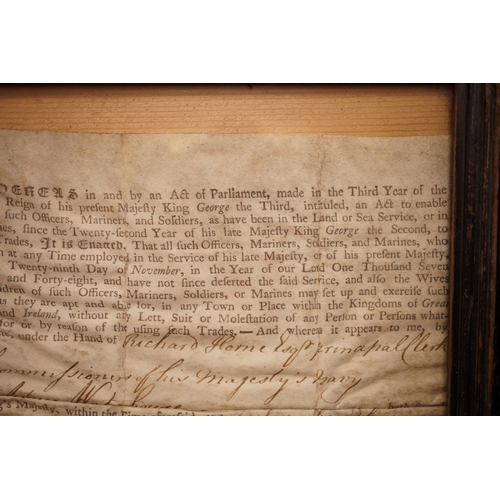 HEREAS in and by an Act of Parliament, made in the Third Year of the
Reign of his present Majeſty King George the Third, intituled, an Act to enable
ſuch Officers, Mariners, and Soldiers, as have been in the Land or Sea Service, or in
nes, ſince the Twenty-ſecond Year of his late Majeſty King George the Second, to
rades, It is Enacted. That all ſuch Officers, Mariners, Soldiers, and Marines, who
n at any Time employed in the Service of his late Majeſty, or of his preſent Majeſty,
Twenty-ninth Day of November, in the Year of our Lord One Thouſand Seven
and Forty-eight, and have not ſince deſerted the ſaid Service, and alſo the Wives
ldren of ſuch Officers, Mariners, Soldiers, or Marines may ſet up and exerciſe ſuch
as they are apt and able for, in any Town or Place within the Kingdoms of Great
nd Ireland, without any Lett, Suit or Moleſtation of any Perſon or Perſons what-
for or by reaſon of the uſing ſuch Trades.—And whereas it appears to me, by
under the Hand of Richard Horne Esqr. principal Clerk
ommissioners of his Majesty's Navy
g's Majeſty, within the